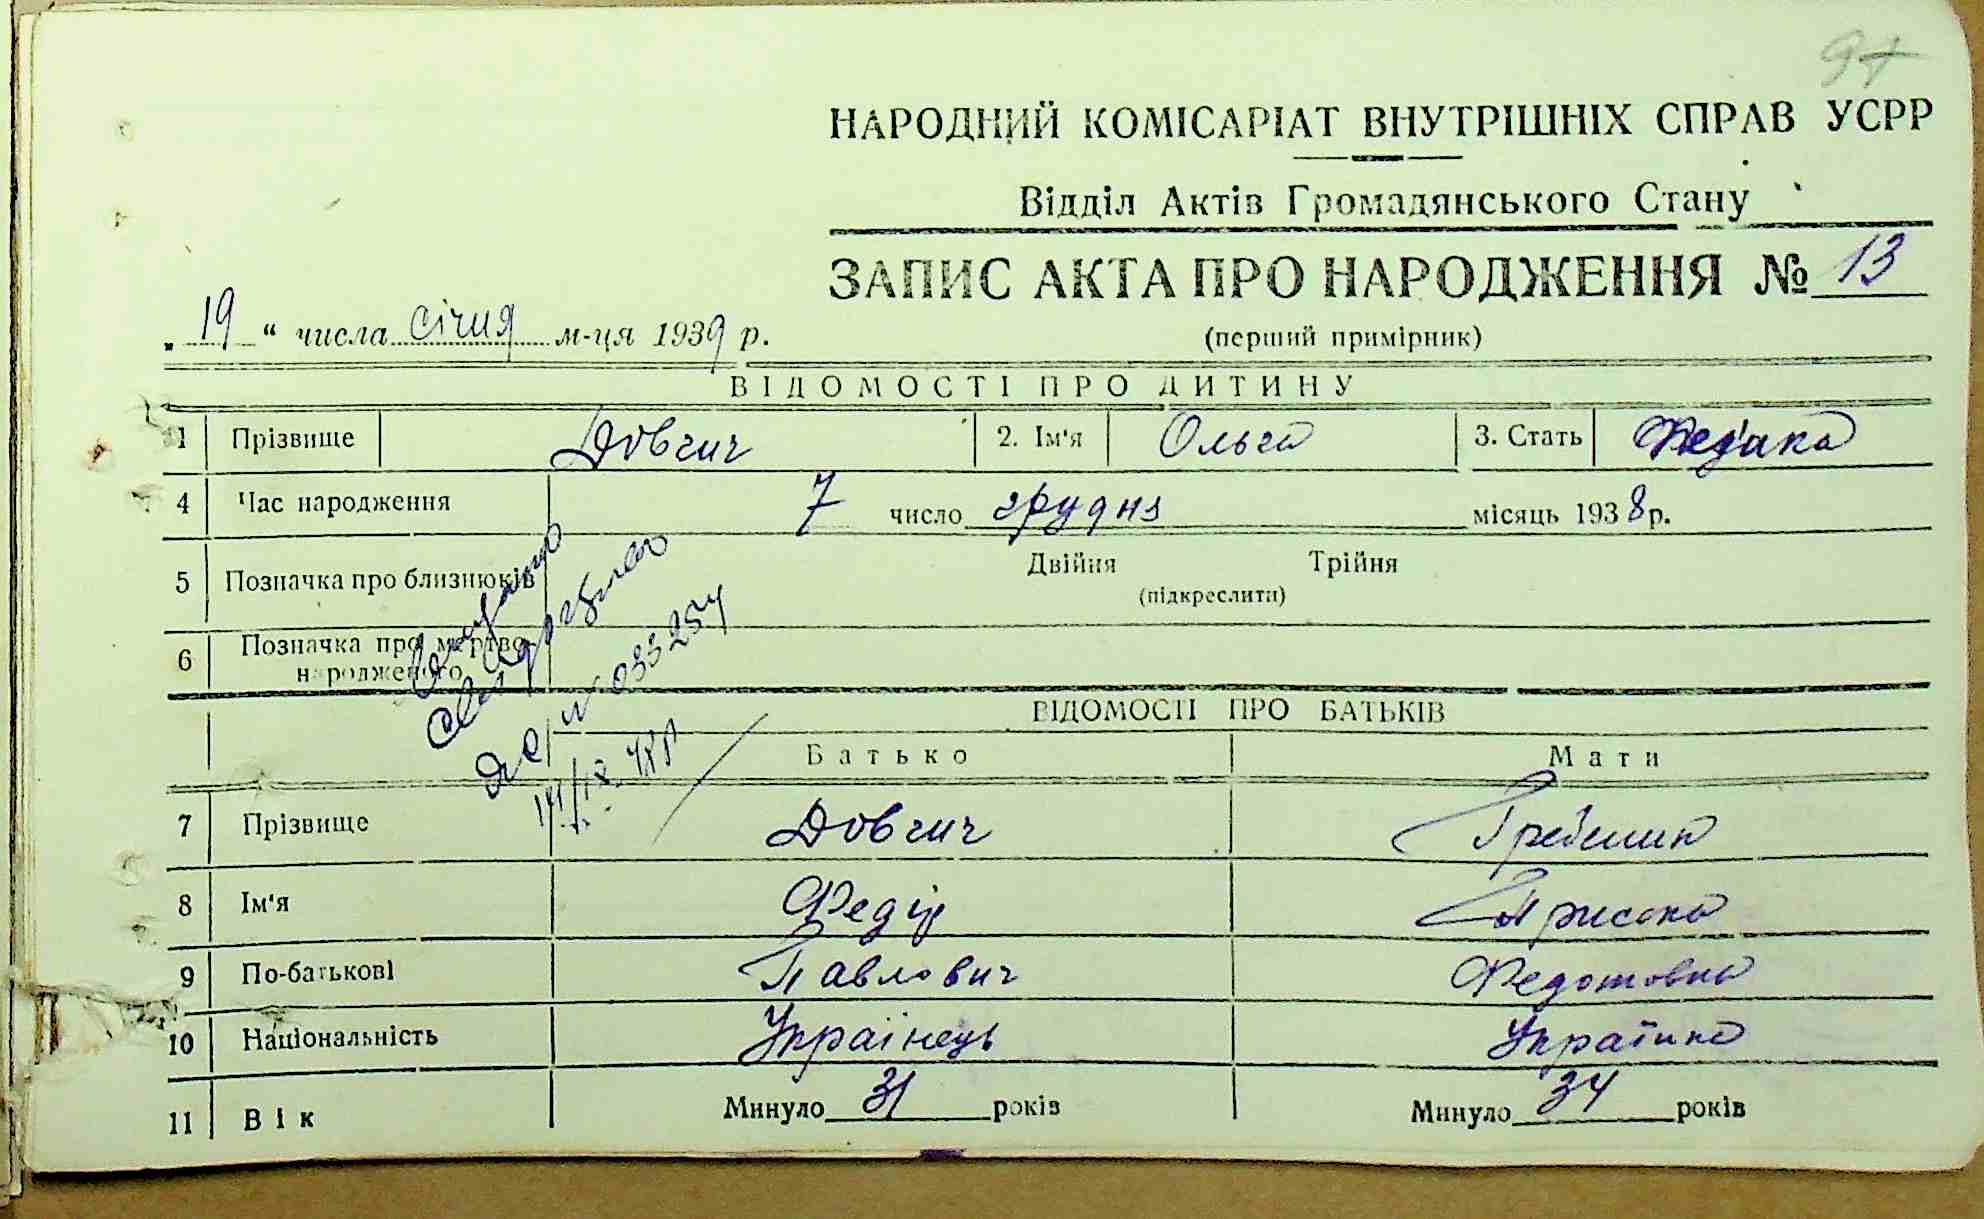 97
НАРОДНИЙ КОМІСАРІАТ ВНУТРІШНІХ СПРАВ УСРР
Відділ Актів Громадянського Стану
ЗАПИС АКТА ПРО НАРОДЖЕННЯ № 13
(перший примірник)
„19“ числа січня м-ця 1939 р.
ВІДОМОСТІ ПРО ДИТИНУ
1 Прізвище Довгич 2. Ім'я Ольга 3. Стать
4 Час народження 7 число грудня місяць 1938 р.
5 Позначка про близнюків Двійня Трійня
(підкреслити)
6 Позначка про мертво-
народженого
№ 033254
ВІДОМОСТІ ПРО БАТЬКІВ
Батько Мати
7 Прізвище Довгич Гребеник
8 Ім'я Федір Пріська
9 По-батькові Павлович Федотовна
10 Національність Українець Українка
11 Вік Минуло 31 років Минуло 34 років